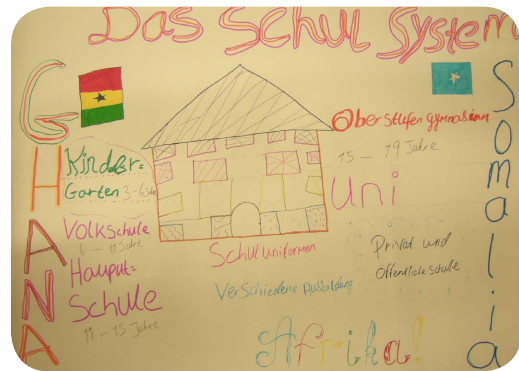 Das Schul System
GHANA
Kinder=
Garten 3-6 Jahre
Volkschule
6 - 11 Jahre
Hauput=
Schule
11 - 15 Jahre
Schuluniformen
Verschiedene Ausbildung
Oberstufengymnasium
15 - 19 Jahre
Uni
Privat und
Öffentliche Schule
Somalia
Afrika!